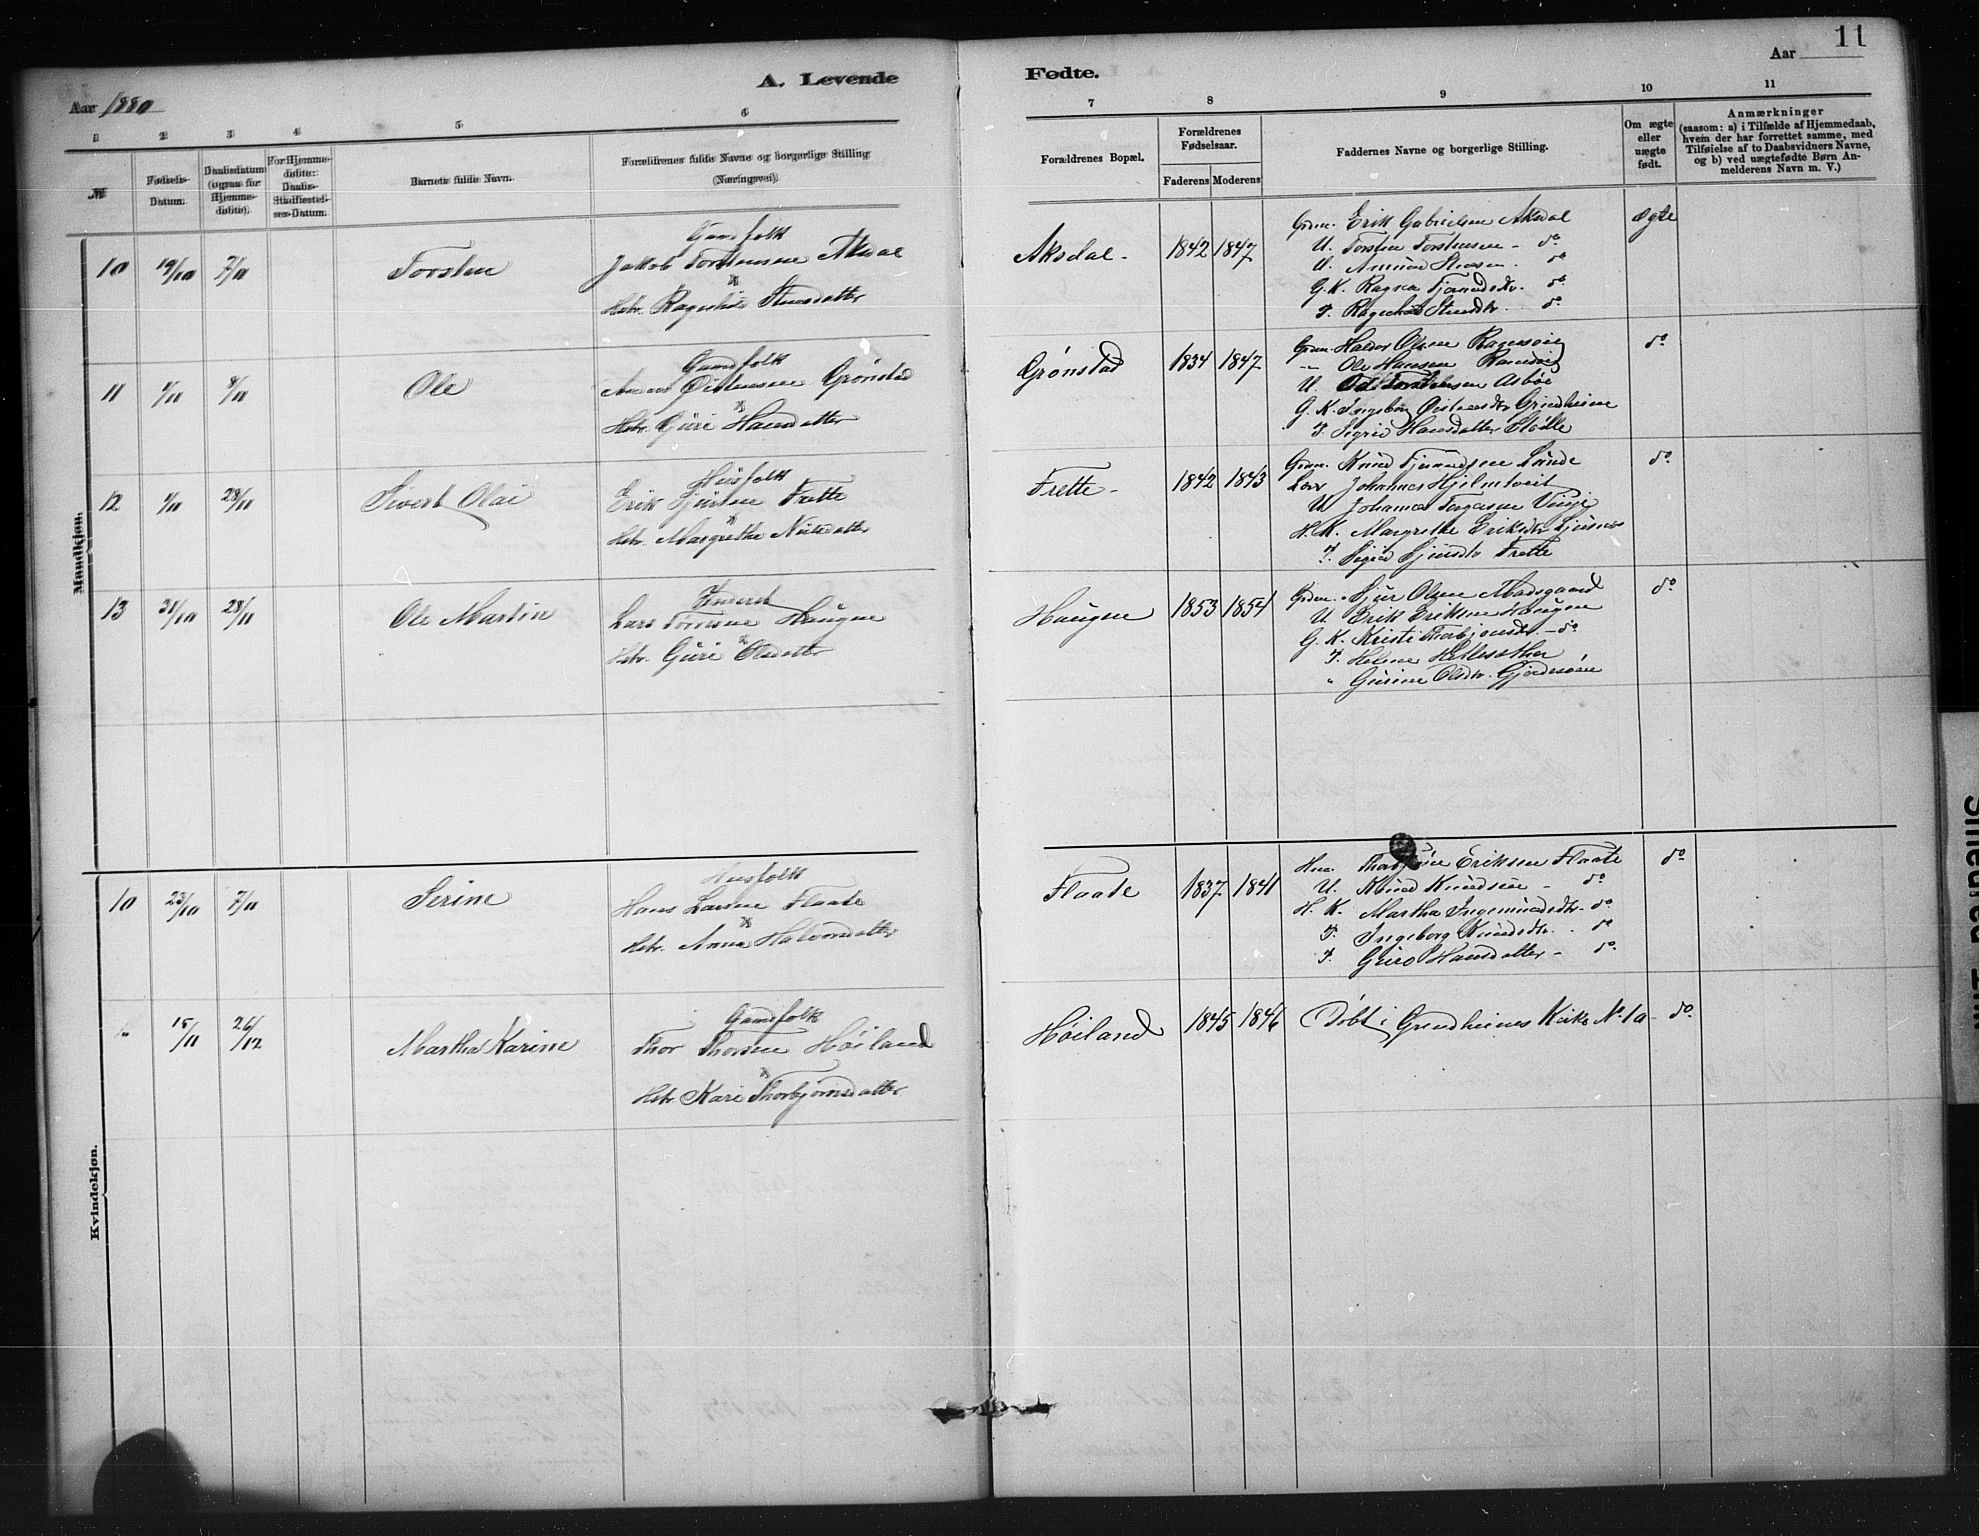 11
A. Levende
Fødte.
Aar 1880
Aar
1 2 3 4 5 6 7 8 9 10 11
№
Fødsels-Datum.
Daabsdatum (ogsaa for Hjemmedøbte).
For Hjemmedøbte: Daabs-Stadfæstelses-Datum.
Barnets fulde Navn.
Forældrenes fulde Navne og borgerlige Stilling (Næringsvei).
Forældrenes Bopæl.
Forældrenes Fødselsaar.
Faderens Moderens
Faddernes Navne og borgerlige Stilling.
Om ægte eller uægte født.
Anmærkninger
(saasom: a) i Tilfælde af Hjemmedaab,
hvem der har forrettet samme, med
Tilføielse af to Daabsvidners Navne,
og b) ved uægtefødte Børn Anmelderens Navn m. V.)
Mandkjøn.
10 19/10 7/11 Torsten
Gaardfolk
Jakob Torstensen Aksdal
Hstr. Ragnhild Steensdatter
Aksdal - 1842 1847
Grdm. Erik Gabrielsen Aksdal
U. Torsten Torstensen - do
U. Amund Steensen - do
G. K. Ragna do
P. Ragnhild Steensdtr. do
Ægte
11 1/11 8/11 Ole
Gaardfolk
Øistensen Grønstad
Hstr. Guri Hansdatter
Grønstad 1834 1847
Grdm. Haldor Olsen
" Ole Hansen
U. Asbøe
G. K. Ingeborg Grindheim
P. Sigrid Hansdatter Støllе
do
12 1/11 28/11 Sivert Olai
Husfolk
Erik Sjursen Frette
Hstr. Margrethe Nilsdatter
Frette - 1842 1843
Grdm. Knud
Johannes Hjelmtveit
U. Johannes Vinje
H. K. Margrethe Eriksdtr.
P. Sigrid Sjursdtr. Frette
do
13 31/10 28/11 Ole Martin
Lars Haugne
Hstr. Guri Olsdatter
Haugne 1853 1854
Grdm. Sjur Olsen Madsgaard
U. Erik Eriksen Haugne
G. K. Kristi Thorbjønsdtr. - do
P. Helene
" Gurine Olsdtr.
do
Kvindekjøn.
10 23/10 7/11 Serine
Husfolk
Hans Larsen Flaate
Hstr. Anna Halvorsdatter
Flaate 1837 1841
Hm. Eriksen Flaate
U. Knud Knudsen - do
H. K. Martha Ingemundsdtr. - do
P. Ingeborg Knudsdtr. - do
P. Guro Hansdatter - do
do
15/11 26/12 Martha Karine
Gaardfolk
Thor Thorsen Høiland
Hstr. Kari Thorbjørnsdatter
Høiland 1845 1846
Døbt i Grindheims Kirke No. 10 - do